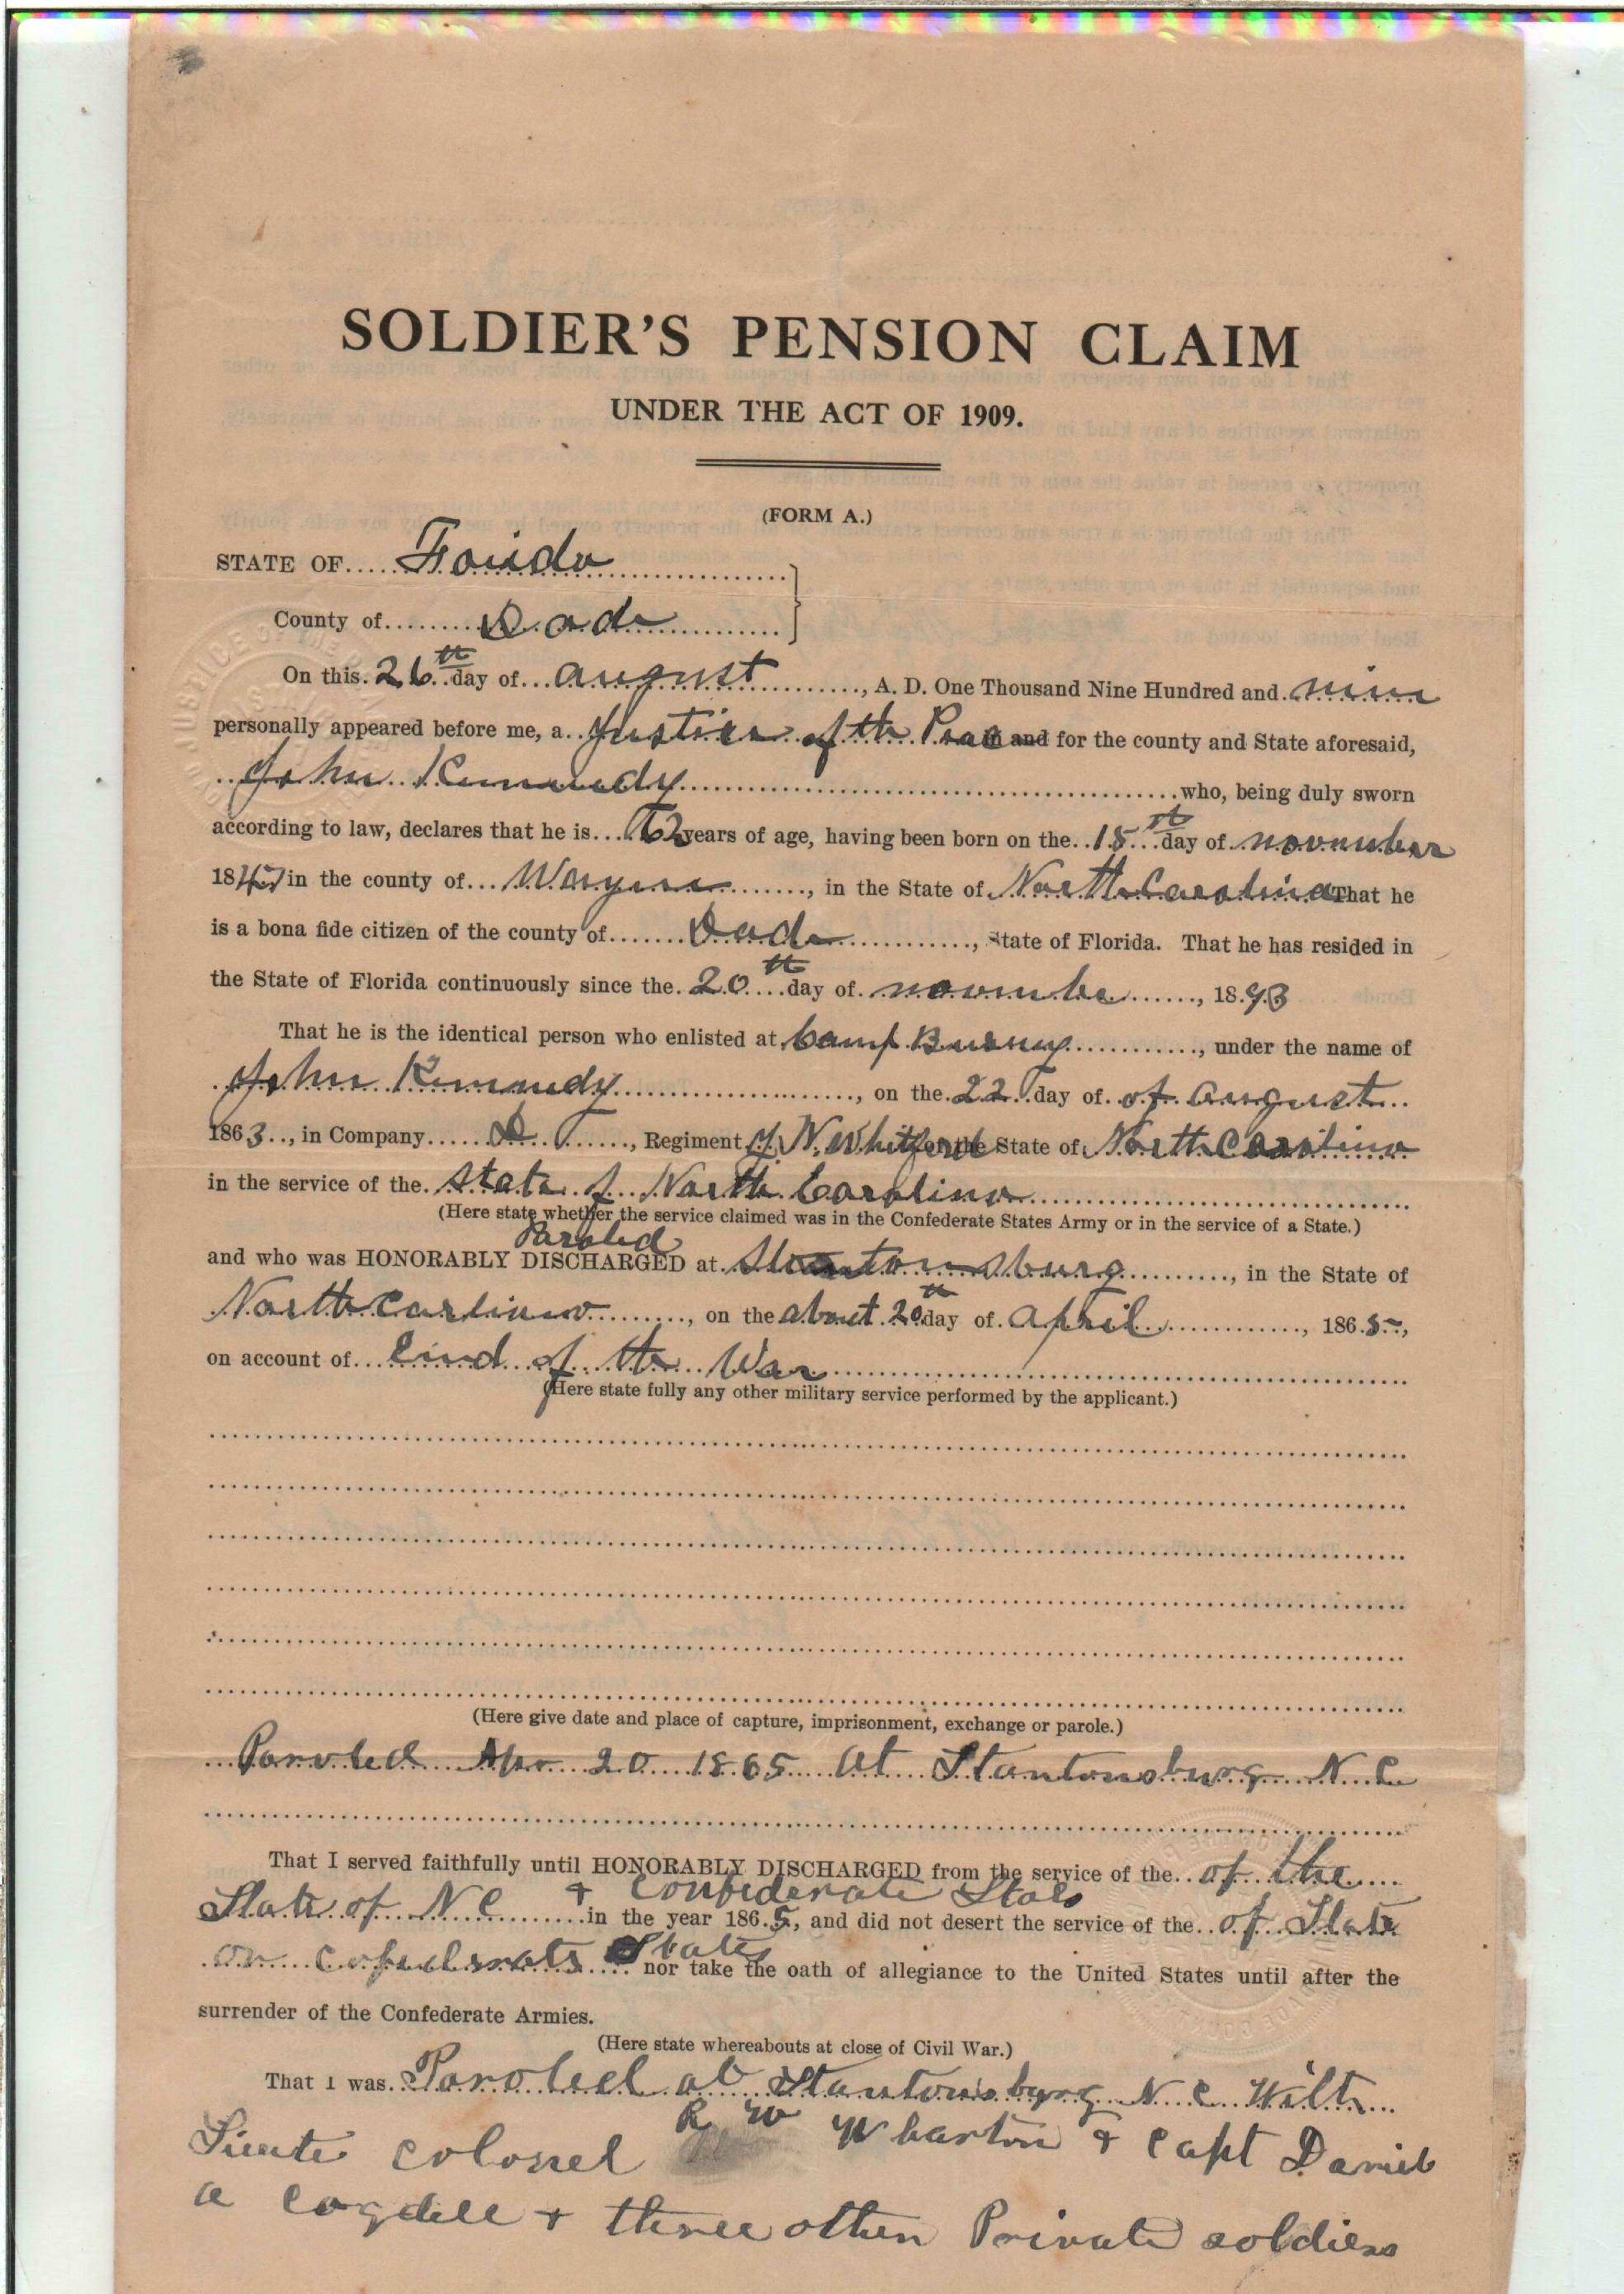 SOLDIER'S PENSION CLAIM
UNDER THE ACT OF 1909.
(FORM A.)
STATE OF Foridu
County of Dade
On this 26th day of august, A. D. One Thousand Nine Hundred and nine
personally appeared before me, a Justice of the Peace and for the county and State aforesaid,
John Kennedy who, being duly sworn
according to law, declares that he is 62 years of age, having been born on the 15th day of november
1847 in the county of Wayne, in the State of North Carolina That he
is a bona fide citizen of the county of Dade, State of Florida. That he has resided in
the State of Florida continuously since the 20th day of november, 1893
That he is the identical person who enlisted at Camp, under the name of
John Kennedy, on the 22 day of of august
1863, in Company D, Regiment J, N. Whitford the State of North Carolina
in the service of the State of North Carolina
(Here state whether the service claimed was in the Confederate States Army or in the service of a State.)
Paroled
and who was HONORABLY DISCHARGED at Stantonsburg, in the State of
North Carlina, on the about 20th day of april, 1865,
on account of End of the War
(Here state fully any other military service performed by the applicant.)
(Here give date and place of capture, imprisonment, exchange or parole.)
Paroled Apr 20 1865 at Stantonsburg N. C
That I served faithfully until HONORABLY DISCHARGED from the service of the of the
State of N C + Confiderate Stats in the year 1865, and did not desert the service of the of State
or Confederate States nor take the oath of allegiance to the United States until after the
surrender of the Confederate Armies.
(Here state whereabouts at close of Civil War.)
That I was Paroled at Stantonsburg N. C. With
Lieute colonel R W Wharton + Capt Daniel
a Cogdell + three other Private soldiers